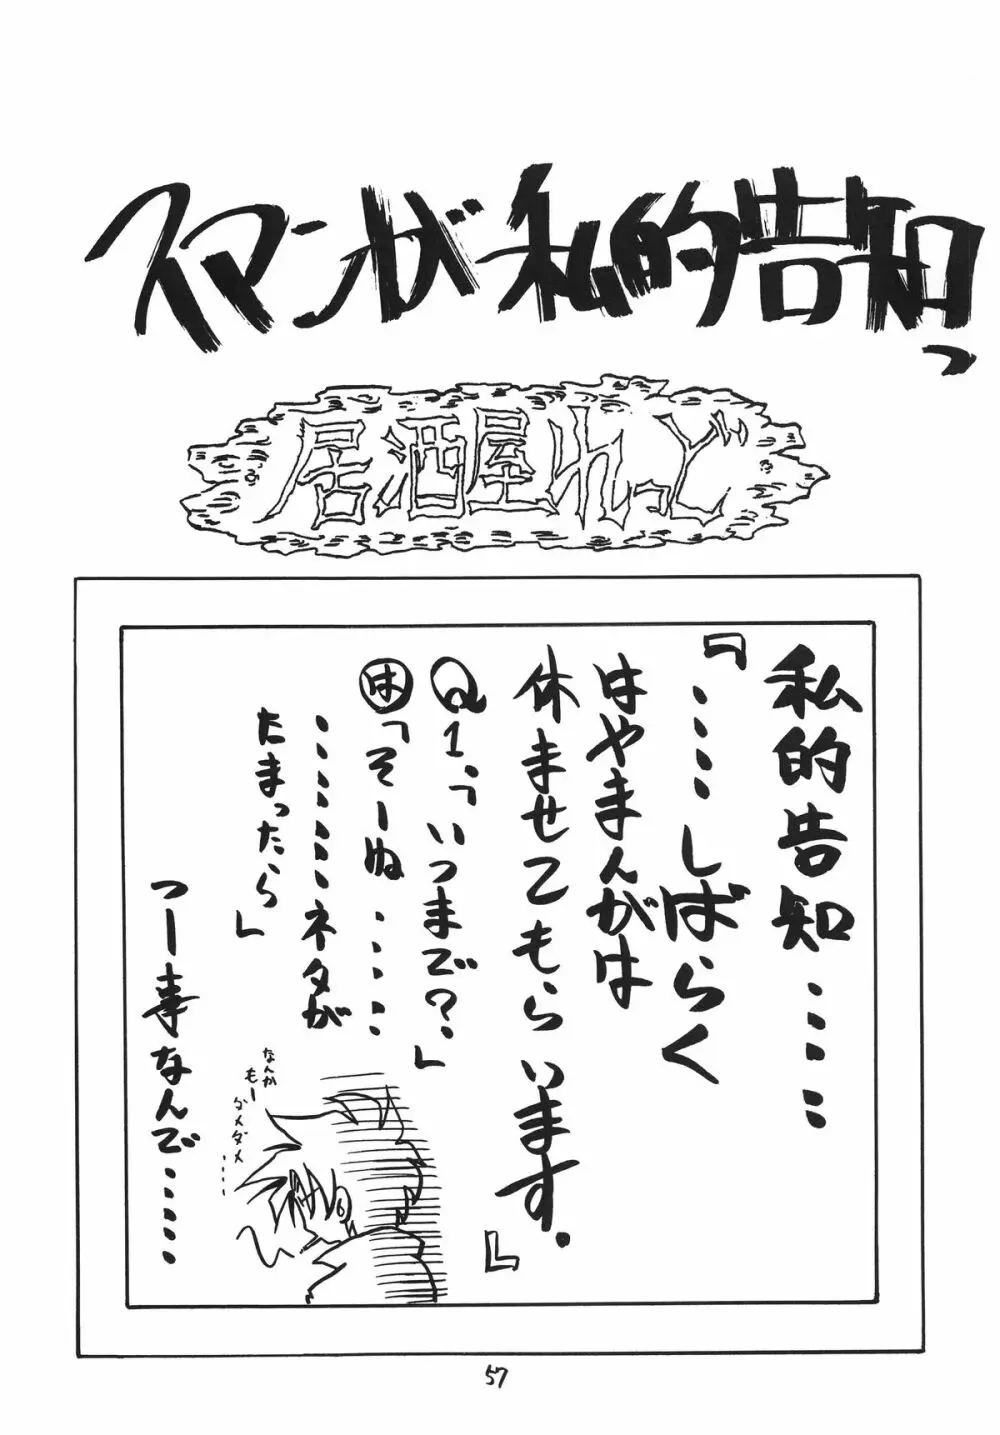 スマンが私的告知っ
居酒屋れっど
私的告知‥‥‥‥
『‥‥‥しばらく
はやまんがは
休ませてもらいます。』
Q1.「いつまで?」
は「そーぬ‥‥‥‥
‥‥‥‥‥‥ネタが
たまったら」
つー事なんで‥‥‥‥
なんか
もー
ダメダメ
‥‥
57